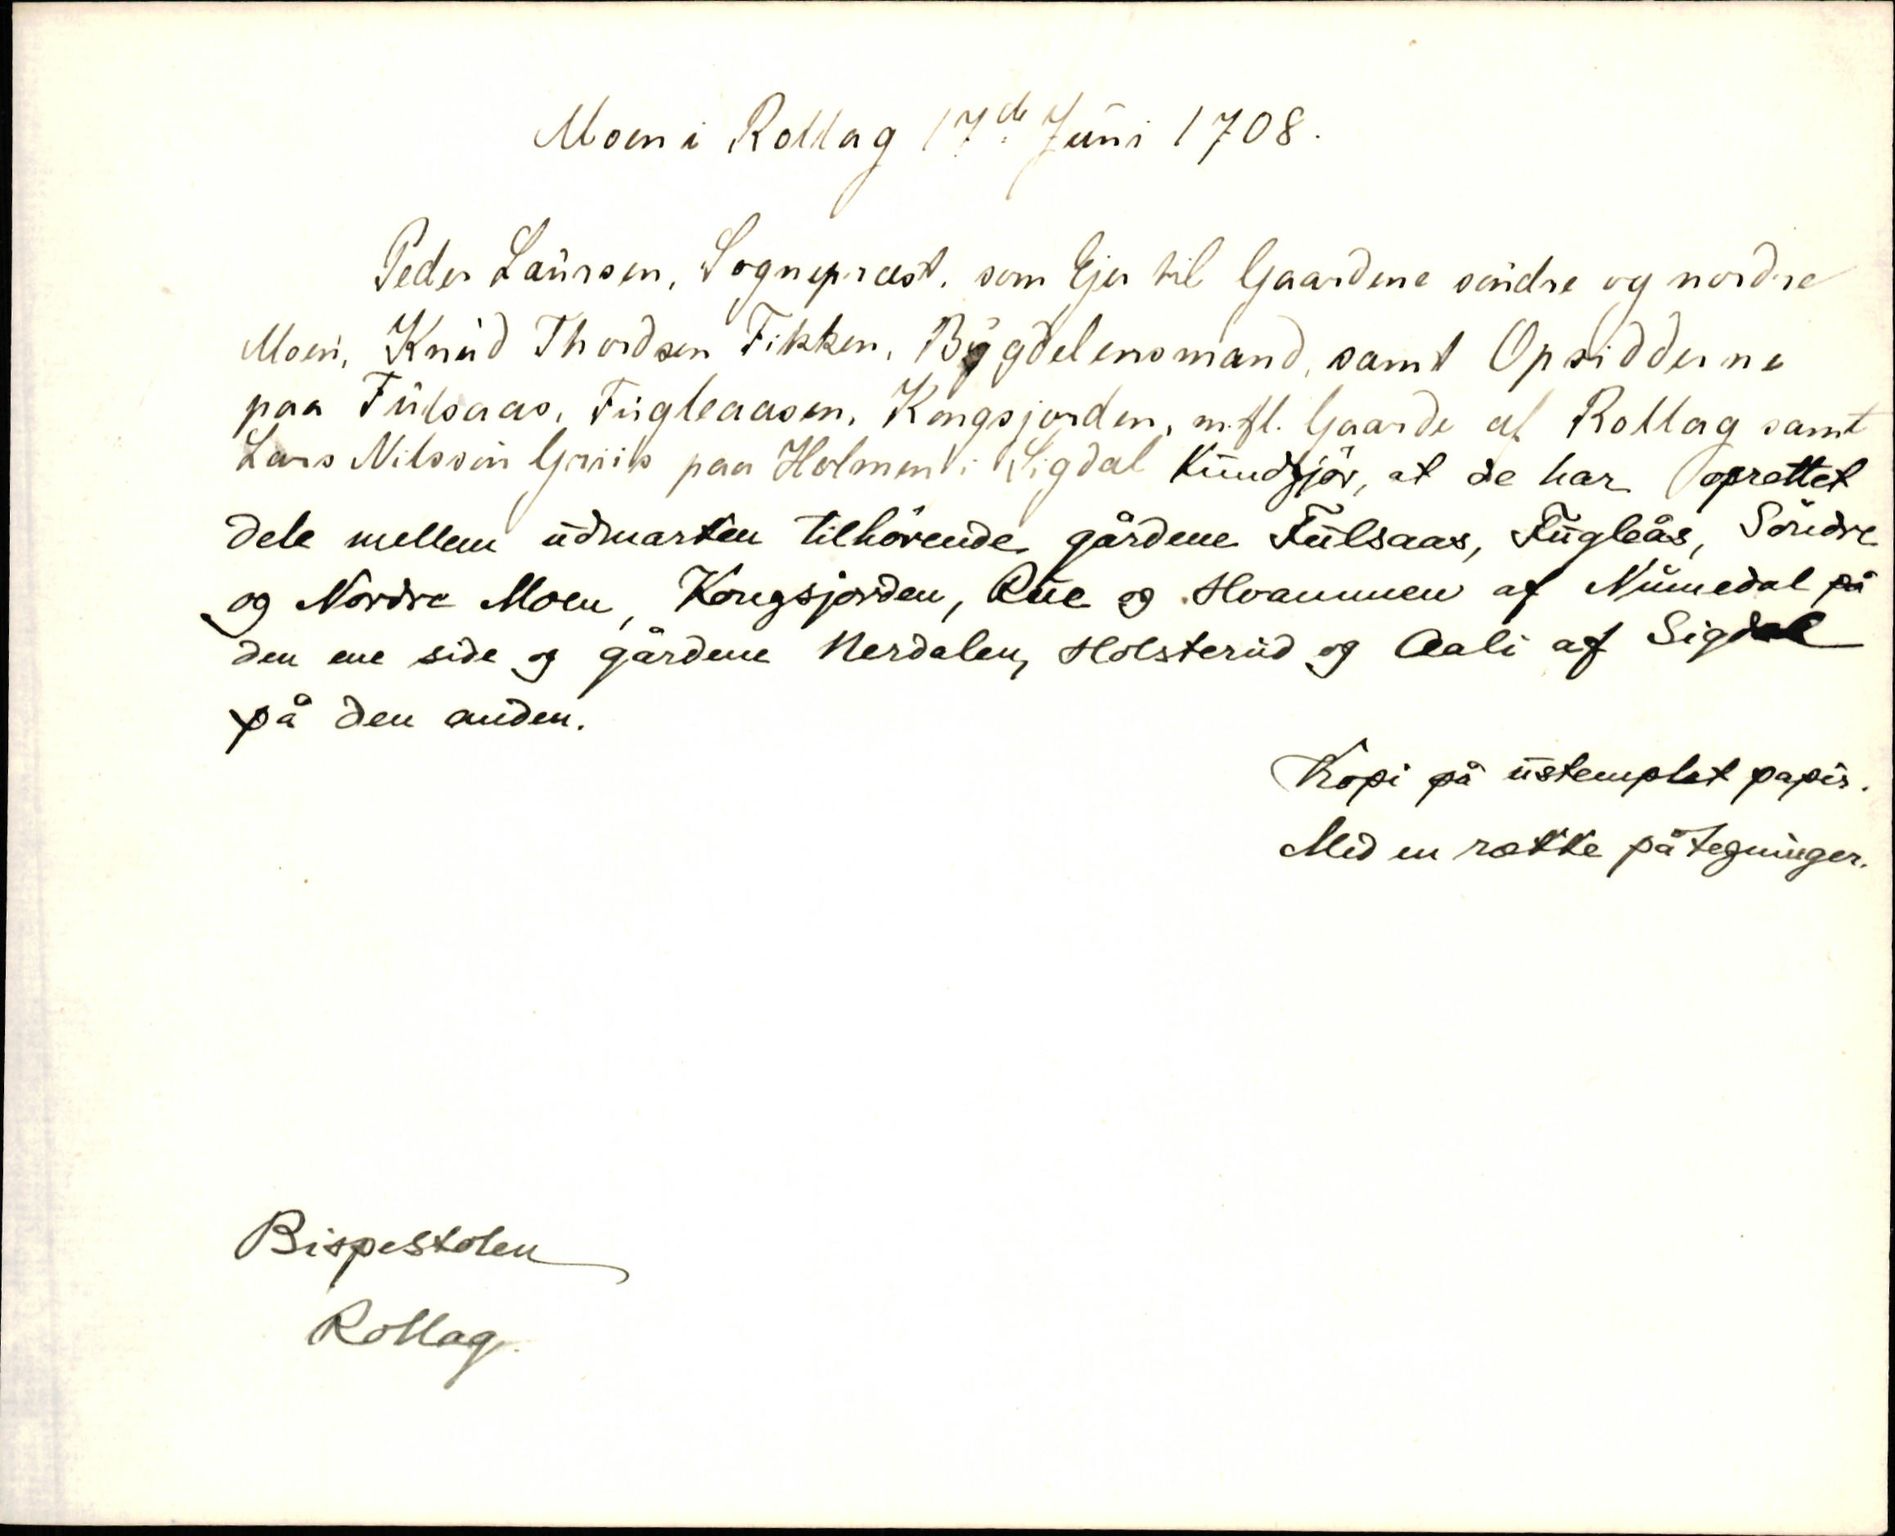 Moen i Rollag 17de Juni 1708.
Peder Laursen, Sognepræst, som Ejer til Gaardene söndre og nordre
Moen, Knud Thordsen Fikken, Bÿgdelensmand, samt Opsidderne
paa Fulsaas, Fugleaasen, Kongsjorden, m.fl. Gaarde af Rollag samt
Lars Nilssön Griis paa Holmen i Sigdal Kundgjör, at de har oprettet
dele mellem udmarken tilhörende gårdene Fulsaas, Fugleås, Söndre
og Nordre Moen, Kongsjorden, Rue og Hvammen af Numedal på
den ene side og gårdene Nerdalen, Holsterud og Aali af Sigdal
på den anden.
Kopi på ustemplet papir.
Med en række påtegninger.
Bispestolen
Rollag.